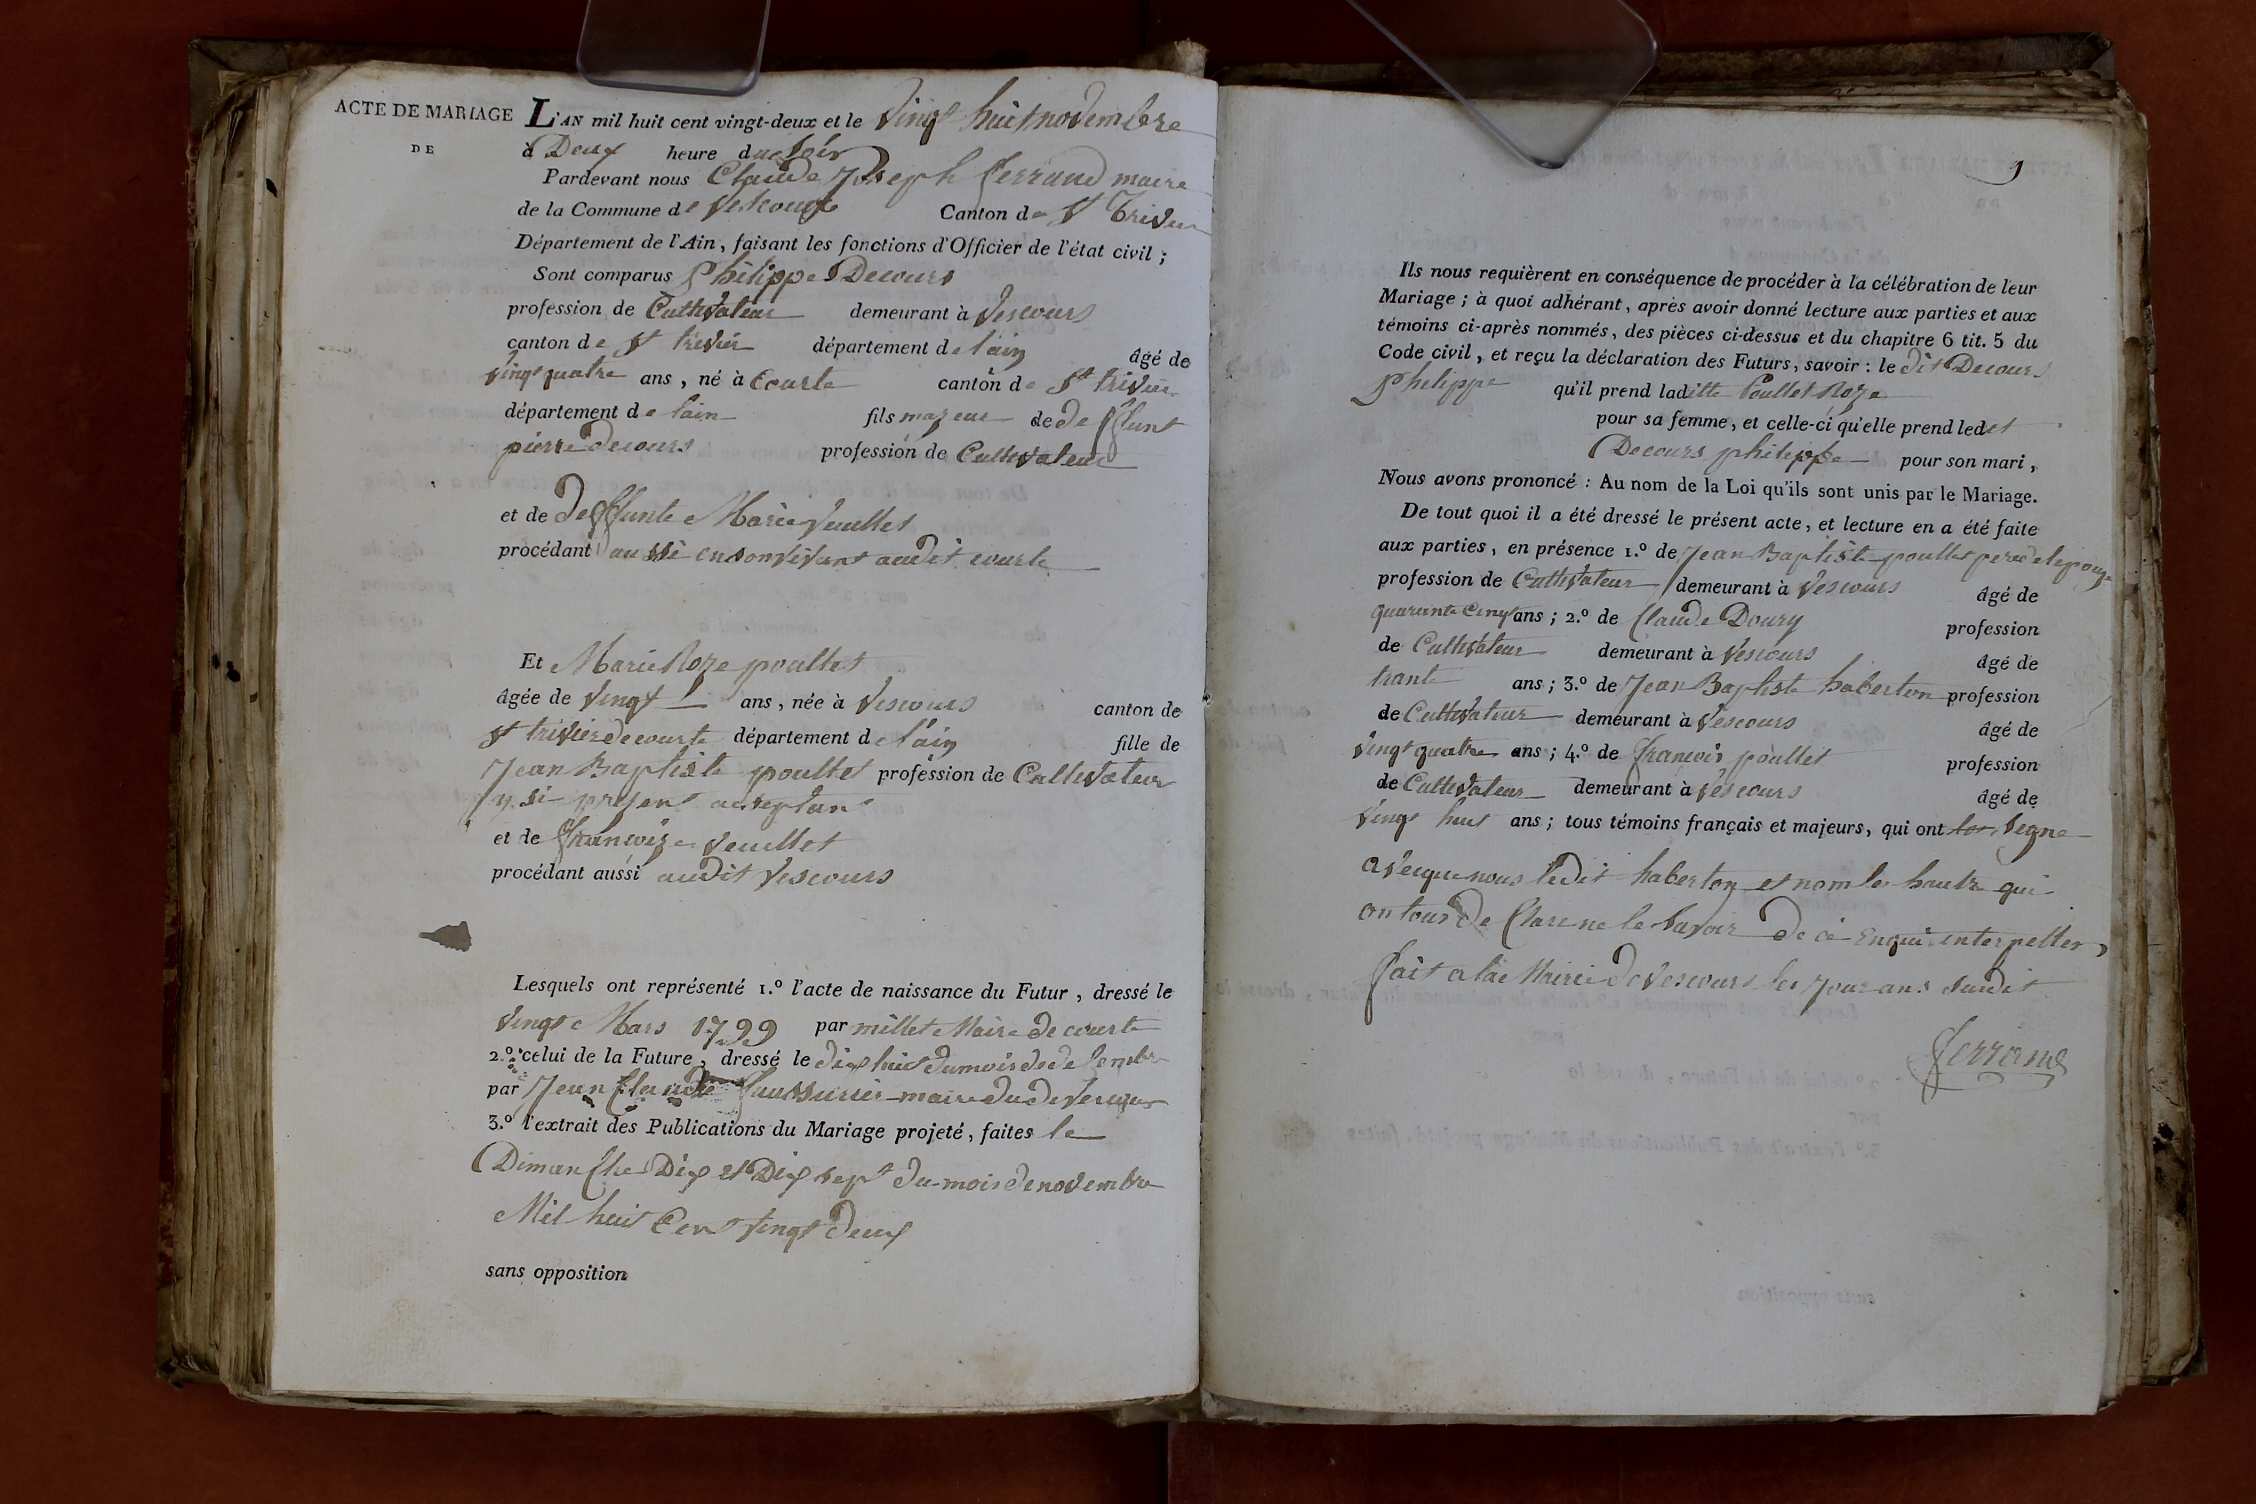 ACTE DE MARIAGE
DE
L'AN mil huit cent vingt-deux et le vingt huit novembre
à Deux heure du soir
Pardevant nous Claude Joseph ferrand maire
de la Commune de Vescours Canton de St Trivier
Département de l'Ain, faisant les fonctions d'Officier de l'état civil ;
Sont comparus Philippe Decours
profession de Cultivateur demeurant à Vescours
canton de St trivier département de lain âgé de
vingt quatre ans, né à Courte canton de St trivier
département de lain fils majeur de deffunt
pierre Decours profession de Cultivateur
et de deffunte Marie veuillet
procédant aussi en son vivant audit courte
Et Marie Roze poullet
âgée de vingt ans, née à Vescours canton de
St trivier de courte département de lain fille de
Jean Baptiste poullet profession de Cultivateur
y si present acceptant
et de francoise veuillet
procédant aussi audit Vescours
Lesquels ont représenté 1.º l'acte de naissance du Futur, dressé le
vingt Mars 1799 par millet Maire de courte
2.º celui de la Future, dressé le dix huit du mois de
par Jean Claude maire du de
3.º l'extrait des Publications du Mariage projeté, faites le
Dimanche Dix et Dix sept du mois de novembre
Mil huit Cent vingt deux
sans opposition
9
Ils nous requièrent en conséquence de procéder à la célébration de leur
Mariage ; à quoi adhérant, après avoir donné lecture aux parties et aux
témoins ci-après nommés, des pièces ci-dessus et du chapitre 6 tit. 5 du
Code civil, et reçu la déclaration des Futurs, savoir : le dit Decours
Philippe qu'il prend laditte Poullet Roze
pour sa femme, et celle-ci qu'elle prend ledet
Decours philippe pour son mari,
Nous avons prononcé : Au nom de la Loi qu'ils sont unis par le Mariage.
De tout quoi il a été dressé le présent acte, et lecture en a été faite
aux parties, en présence 1.º de Jean Baptiste poullet pere de lepouze
profession de Cultivateur demeurant à Vescours âgé de
quarante Cinq ans ; 2.º de Claude Doury profession
de Cultivateur demeurant à Vescours âgé de
trante ans ; 3.º de Jean Baptiste haberton profession
de Cultivateur demeurant à Vescours âgé de
vingt quatre ans ; 4.º de francois poullet profession
de Cultivateur demeurant à Vescours âgé de
vingt huit ans ; tous témoins français et majeurs, qui ont signe
avecque nous ledit haberton et nom les hautre qui
on tous de Clare ne le savoir de ce Enqui interpelles
fait a la Mairie de Vescours les jour an susdit
ferrand